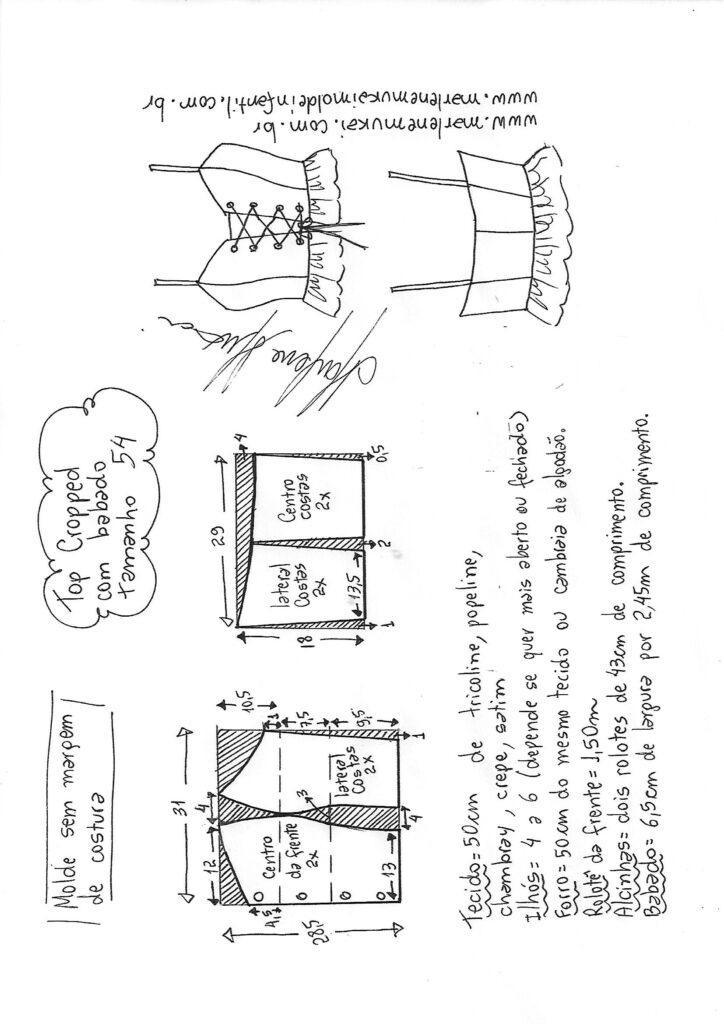 Molde sem margem
de costura
Top Cropped
com babado
tamanho 54
www.marlenemukai.com.br
www.marlenemukaimoldeinfantil.com.br
Marlene Mukai
31
12
4
10,5
1
7,5
9,5
1
4,5
28,5
Centro
da frente
2x
3
lateral
Costas
2x
13
4
29
4
18
lateral
Costas
2x
Centro
costas
2x
13,5
1
2
0,5
Tecido = 50cm de tricoline, popeline,
chambray, crepe, setim
Ilhós = 4 a 6 (depende se quer mais aberto ou fechado)
Forro = 50cm do mesmo tecido ou cambraia de algodão.
Rolotê da frente = 1,50m
Alcinhas = dois rolotes de 43cm de comprimento.
Babado = 6,5cm de largura por 2,45m de comprimento.